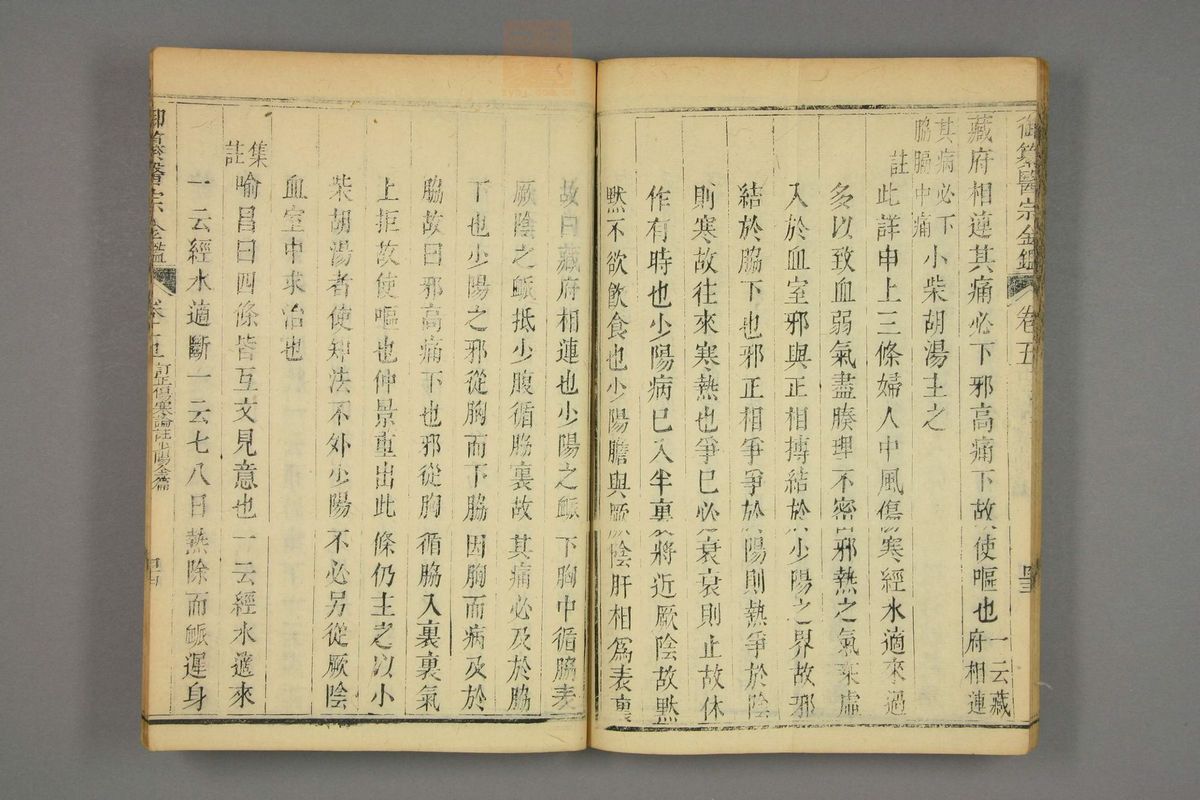 御纂醫宗金鑑 卷五
藏府相連其痛必下邪高痛下故使嘔也一云藏府相連
其病必下脇膈中痛小柴胡湯主之
註此詳申上三條婦人中風傷寒經水適來過
多以致血弱氣盡腠理不密邪熱之氣乘虛
入於血室邪與正相搏結於少陽之界故邪
結於脇下也邪正相爭爭於陽則熱爭於陰
則寒故往來寒熱也爭已必衰衰則止故休
作有時也少陽病已入半裏將近厥陰故默
默不欲飲食也少陽膽與厥陰肝相爲表裏
故曰藏府相連也少陽之䘑下胸中循脇表
厥陰之䘑抵少腹循脇裏故其痛必及於脇
下也少陽之邪從胸而下脇因胸而病及於
脇故曰邪高痛下也邪從胸循脇入裏裏氣
上拒故使嘔也仲景重出此條仍主之以小
柴胡湯者使知法不外少陽不必另從厥陰
血室中求治也
集註喻昌曰四條皆互文見意也一云經水適來
一云經水適斷一云七八日熱除而䘑遲身
御纂醫宗金鑑 訂正傷寒論註少陽全篇